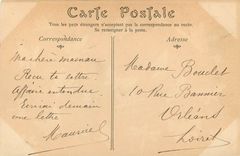 Carte Postale
Tous les pays étrangers n'acceptent pas la correspondance au recto.
Se renseigner à la poste.
Correspondance
Adresse
Ma chère maman
Reçu ta lettre.
Affaire entendue.
Ecrirai demain
une lettre
Maurice
Madame Boudet
10 Rue Bannier
Orléans
Loiret